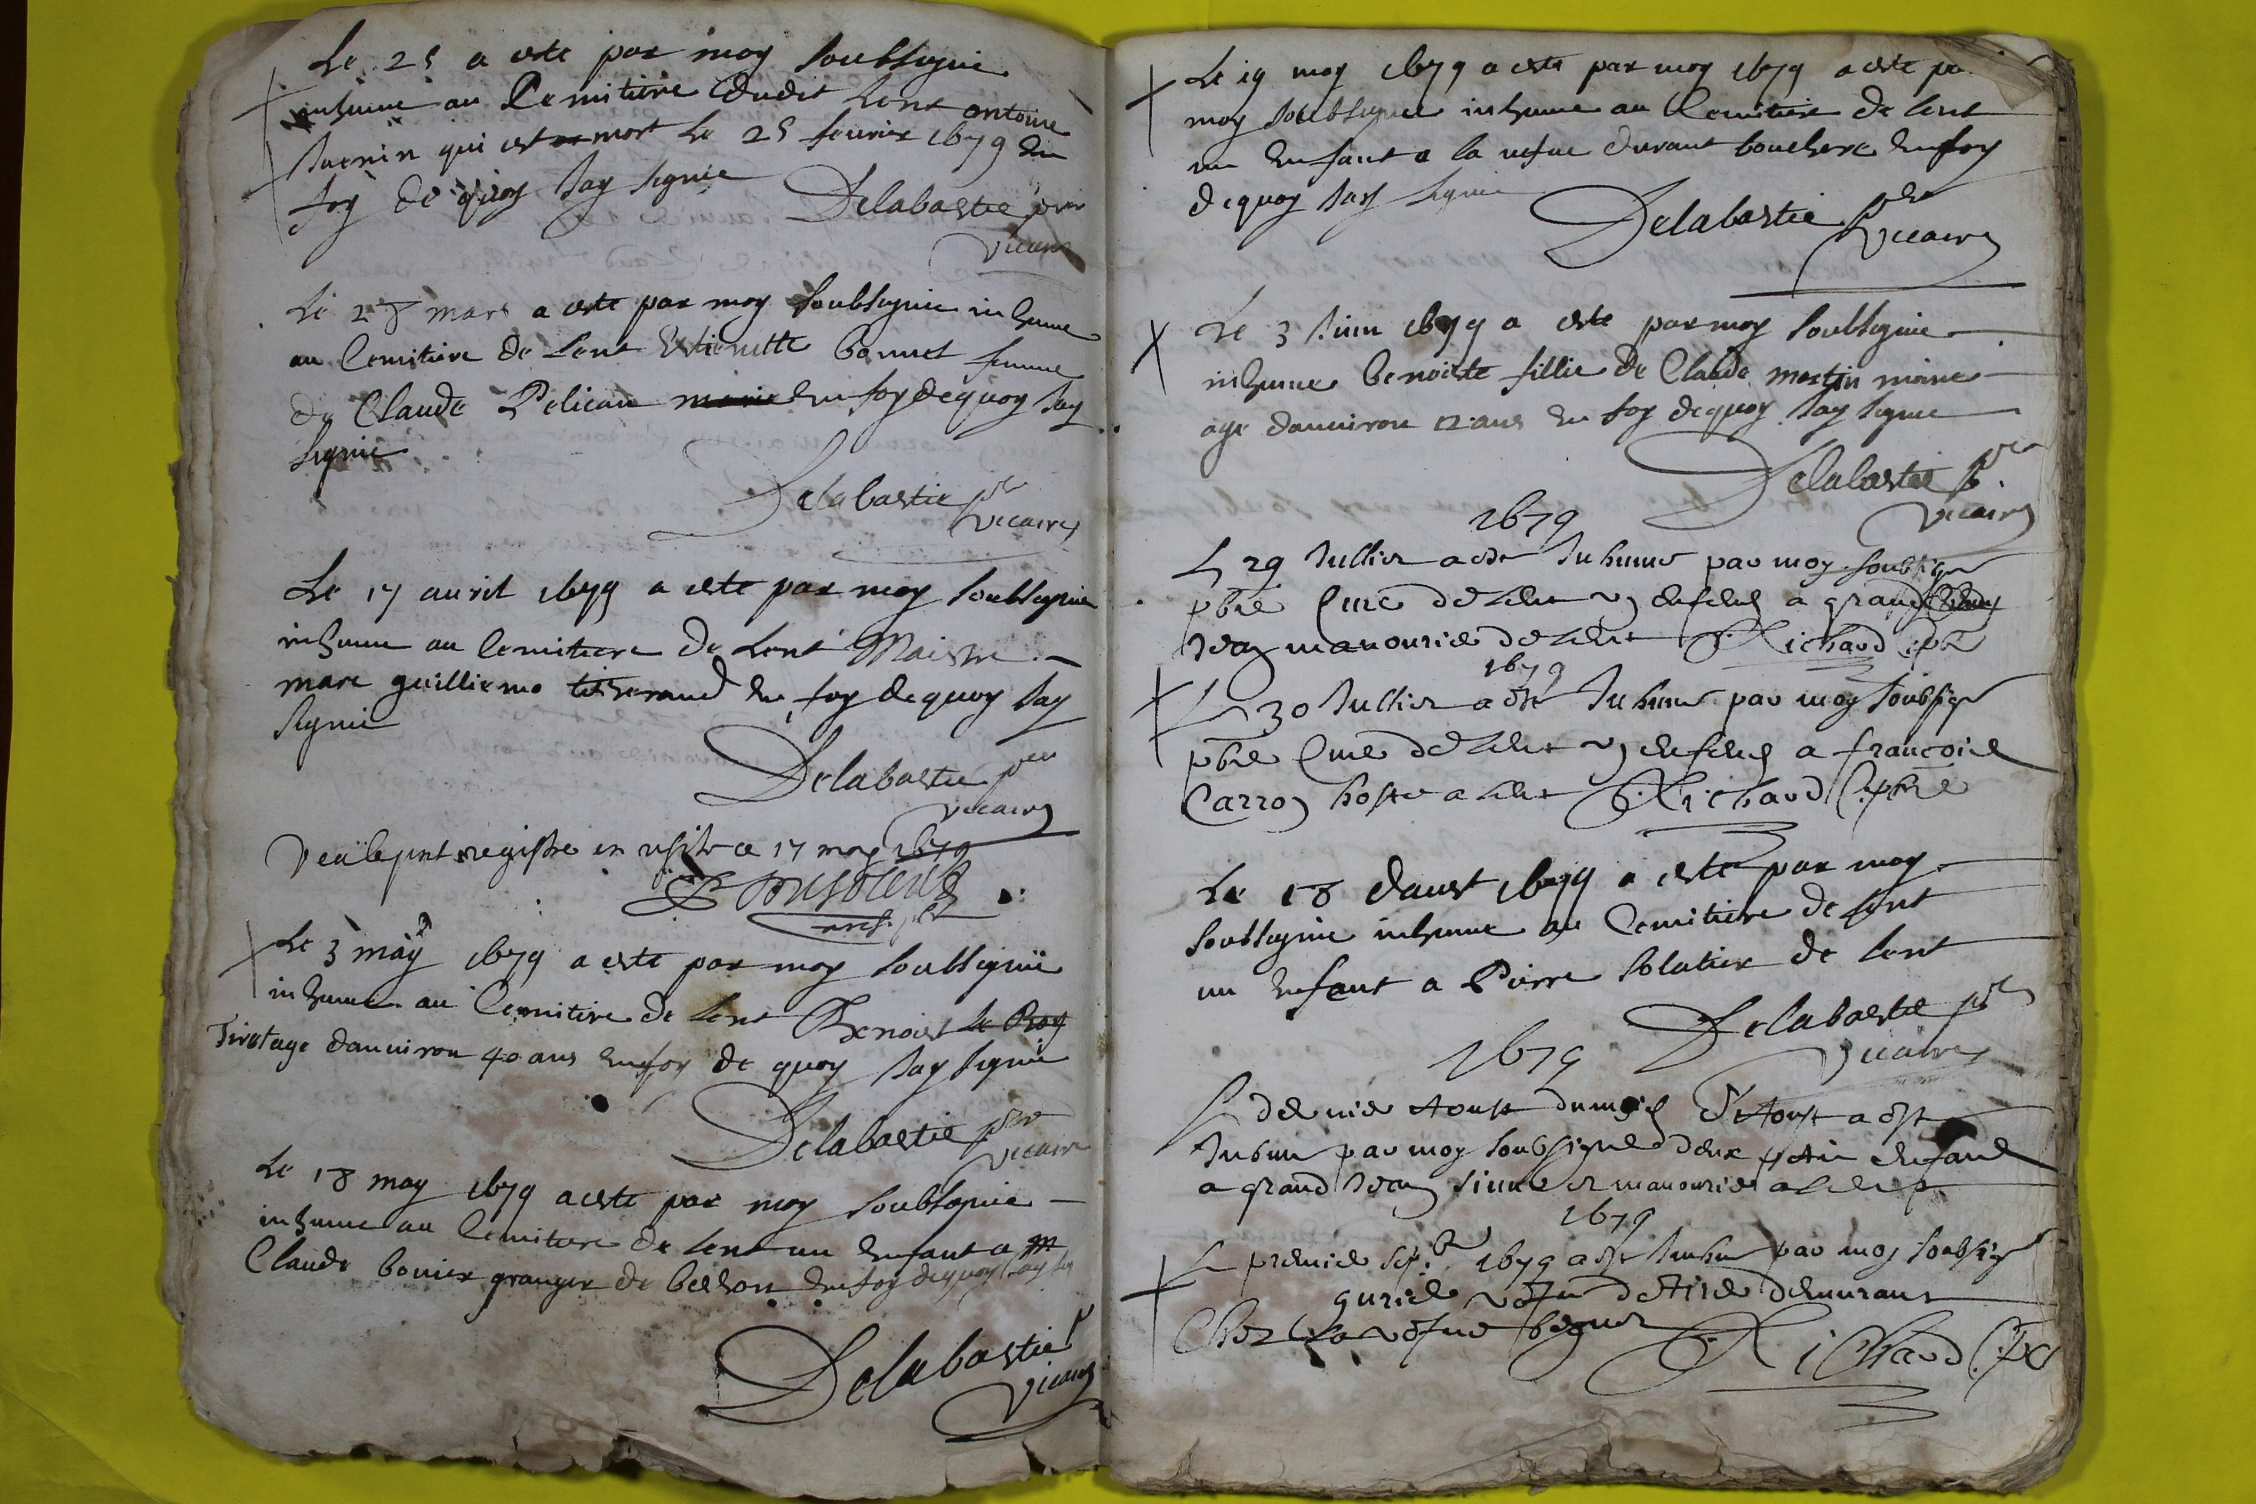 Le 25 a este par moy soubsignie
inhume au Cemitiere dudit Lent antoine
Juenin qui est mort Le 25 feurier 1679 En
foy de quoy Jay signie
Delabastie pbre
vicaire
Le 28 mars a este par moy soubsignie inhume
au Cemitiere de Lent Estienette bonnet femme
de Claude Pelican En foy dequoy Jay
signie
Delabastie pbre
vicaire
Le 17 auril 1679 a este par moy soubsignie
inhume au Cemitiere de Lent Maistre
marc guilliermo tisserand En foy dequoy Jay
signie
Delabastie pbre
vicaire
Veu le pnt registre en visite ce 17 may 1679
Le 3 may 1679 a este par moy soubsignie
inhume au Cemitiere de Lent Benoist Le Roy
age danuiron 40 ans En foy de quoy Jay signie
Delabastie pbre
vicaire
Le 18 may 1679 a este par moy soubsignie
inhume au Cemitiere de Lent un Enfant a
Claude bouier granger de En foy dequoy Jay
Delabastie p
vicaire
Le 19 may 1679 a este par moy 1679 a este pa
moy soubsignie inhume au Cemitiere de Lent
un Enfant a la vefue durant bouchere En foy
dequoy Jay signie
Delabastie pbre
vicaire
Le 3 Juin 1679 a este par moy soubsignie
inhume benoiste fillie de Claude martin moine
age danuiron 12 ans En foy dequoy Jay signie
Delabastie pbre
vicaire
1679
Le 29 Jullier a este Inhume par moy soubsigne
pbre Cure de Lent un enfent a grand
Jean manourier de Lent Richard pbre
1679
Le 30 Jullier a este Inhume par moy soubsigne
pbre Cure de Lent un enfent a francois
Carron hoste a Lent Richard pbre
Le 18 daust 1679 a este par moy
soubsignie inhume au Cemitiere de Lent
un Enfant a Pierre solatier de Lent
Delabastie pbre
vicaire
1679
Le dernier Aoust du mois d'Aoust a este
Inhume par moy soubsigne deux petit enfans
a grand Jean manourier a Lent
1679
Le premier sepbre 1679 a este Inhume par moy soubsigne
demeurant
Chez La vefue
Richard